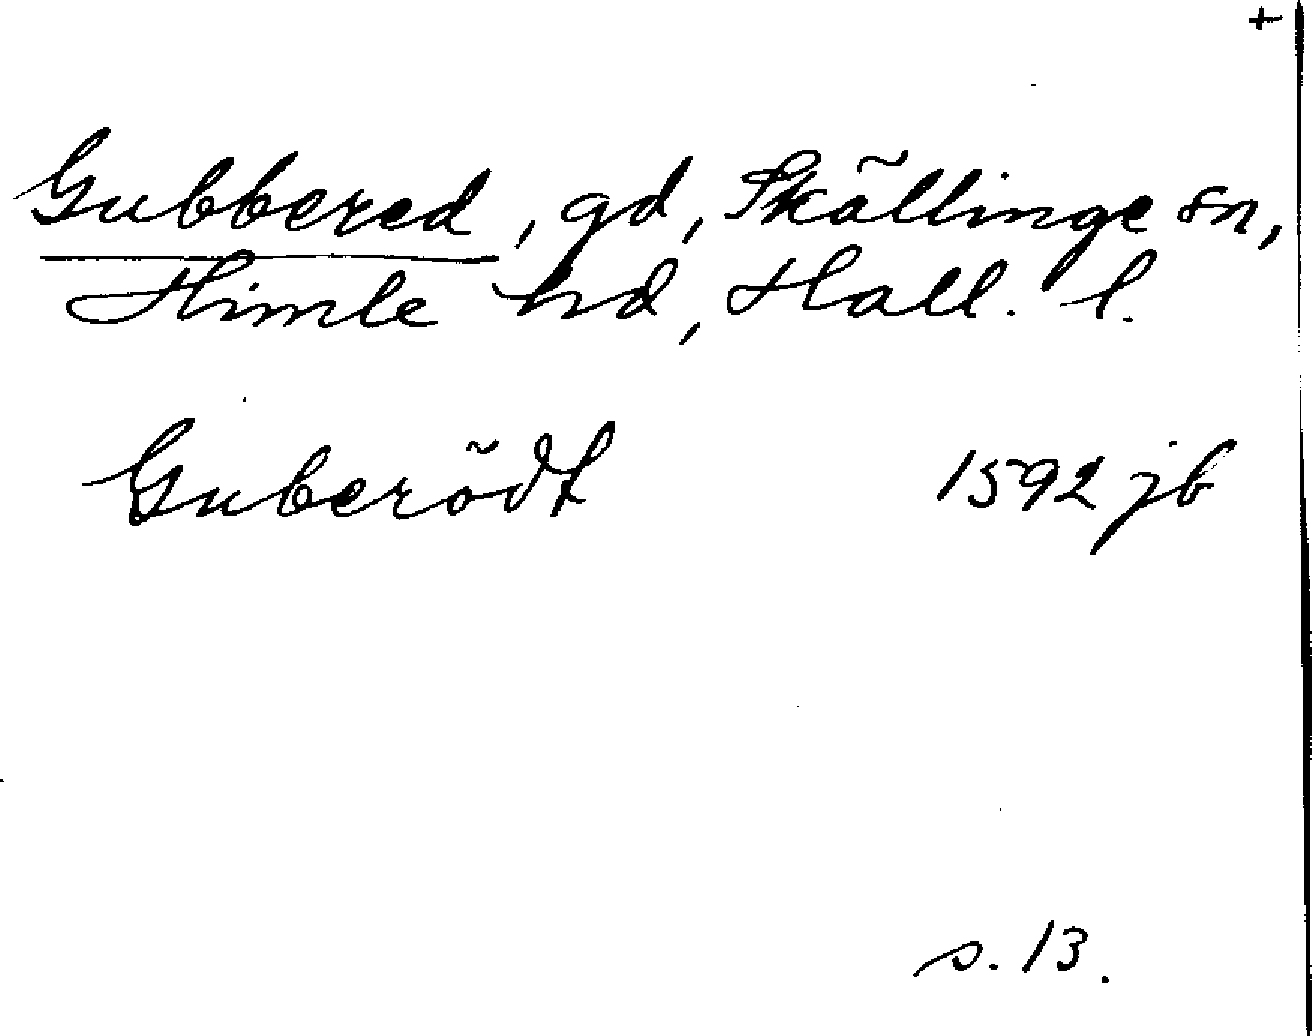 +
Gubbered, gd, Skällinge sn,
Himle hd, Hall. l.
Guberödt 1592 jb
s. 13.